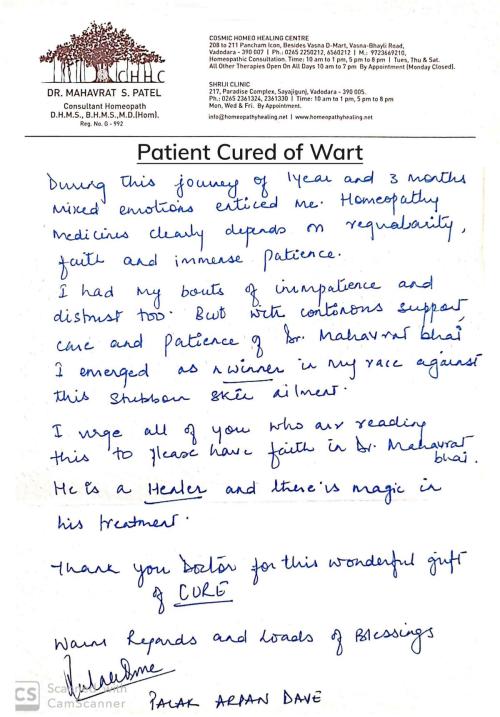 CHHC
DR. MAHAVRAT S. PATEL
Consultant Homeopath
D.H.M.S., B.H.M.S.,M.D.(Hom).
Reg. No. G - 992
COSMIC HOMEO HEALING CENTRE
208 to 211 Pancham Icon, Besides Vasna D-Mart, Vasna-Bhayli Road,
Vadodara - 390 007 | Ph.: 0265 2250212, 6560212 | M.: 9723669210,
Homeopathic Consultation. Time: 10 am to 1 pm, 5 pm to 8 pm | Tues, Thu & Sat.
All Other Therapies Open On All Days 10 am to 7 pm By Appointment (Monday Closed).
SHRIJI CLINIC
217, Paradise Complex, Sayajigunj, Vadodara - 390 005.
Ph.: 0265 2361324, 2361330 | Time: 10 am to 1 pm, 5 pm to 8 pm
Mon, Wed & Fri. By Appointment.
info@homeopathyhealing.net | www.homeopathyhealing.net
Patient Cured of Wart
During this journey of 1year and 3 months
mixed emotions enticed me. Homeopathy
medicines clearly depends on regularity,
faith and immense patience.
I had my bouts of impatience and
distrust too. But with continous support,
care and patience of Dr. Mahavrat bhai
I emerged as a winner in my race against
this stubborn skin ailment.
I urge all of you who are reading
this to please have faith in Dr. Mahavrat
bhai.
He is a Healer and there is magic in
his treatment.
Thank you Doctor for this wonderful gift
of CURE
Warm Regards and Loads of Blessings
PALAK ARPAN DAVE
CS Scanned with
CamScanner